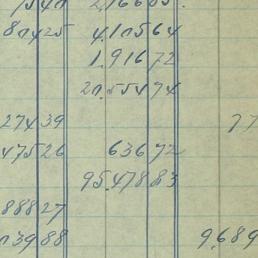 80425 4.105.64
1.916.72
20.554.74
27439 77
47526 636.72
95.478.83
88827
03988 9.689